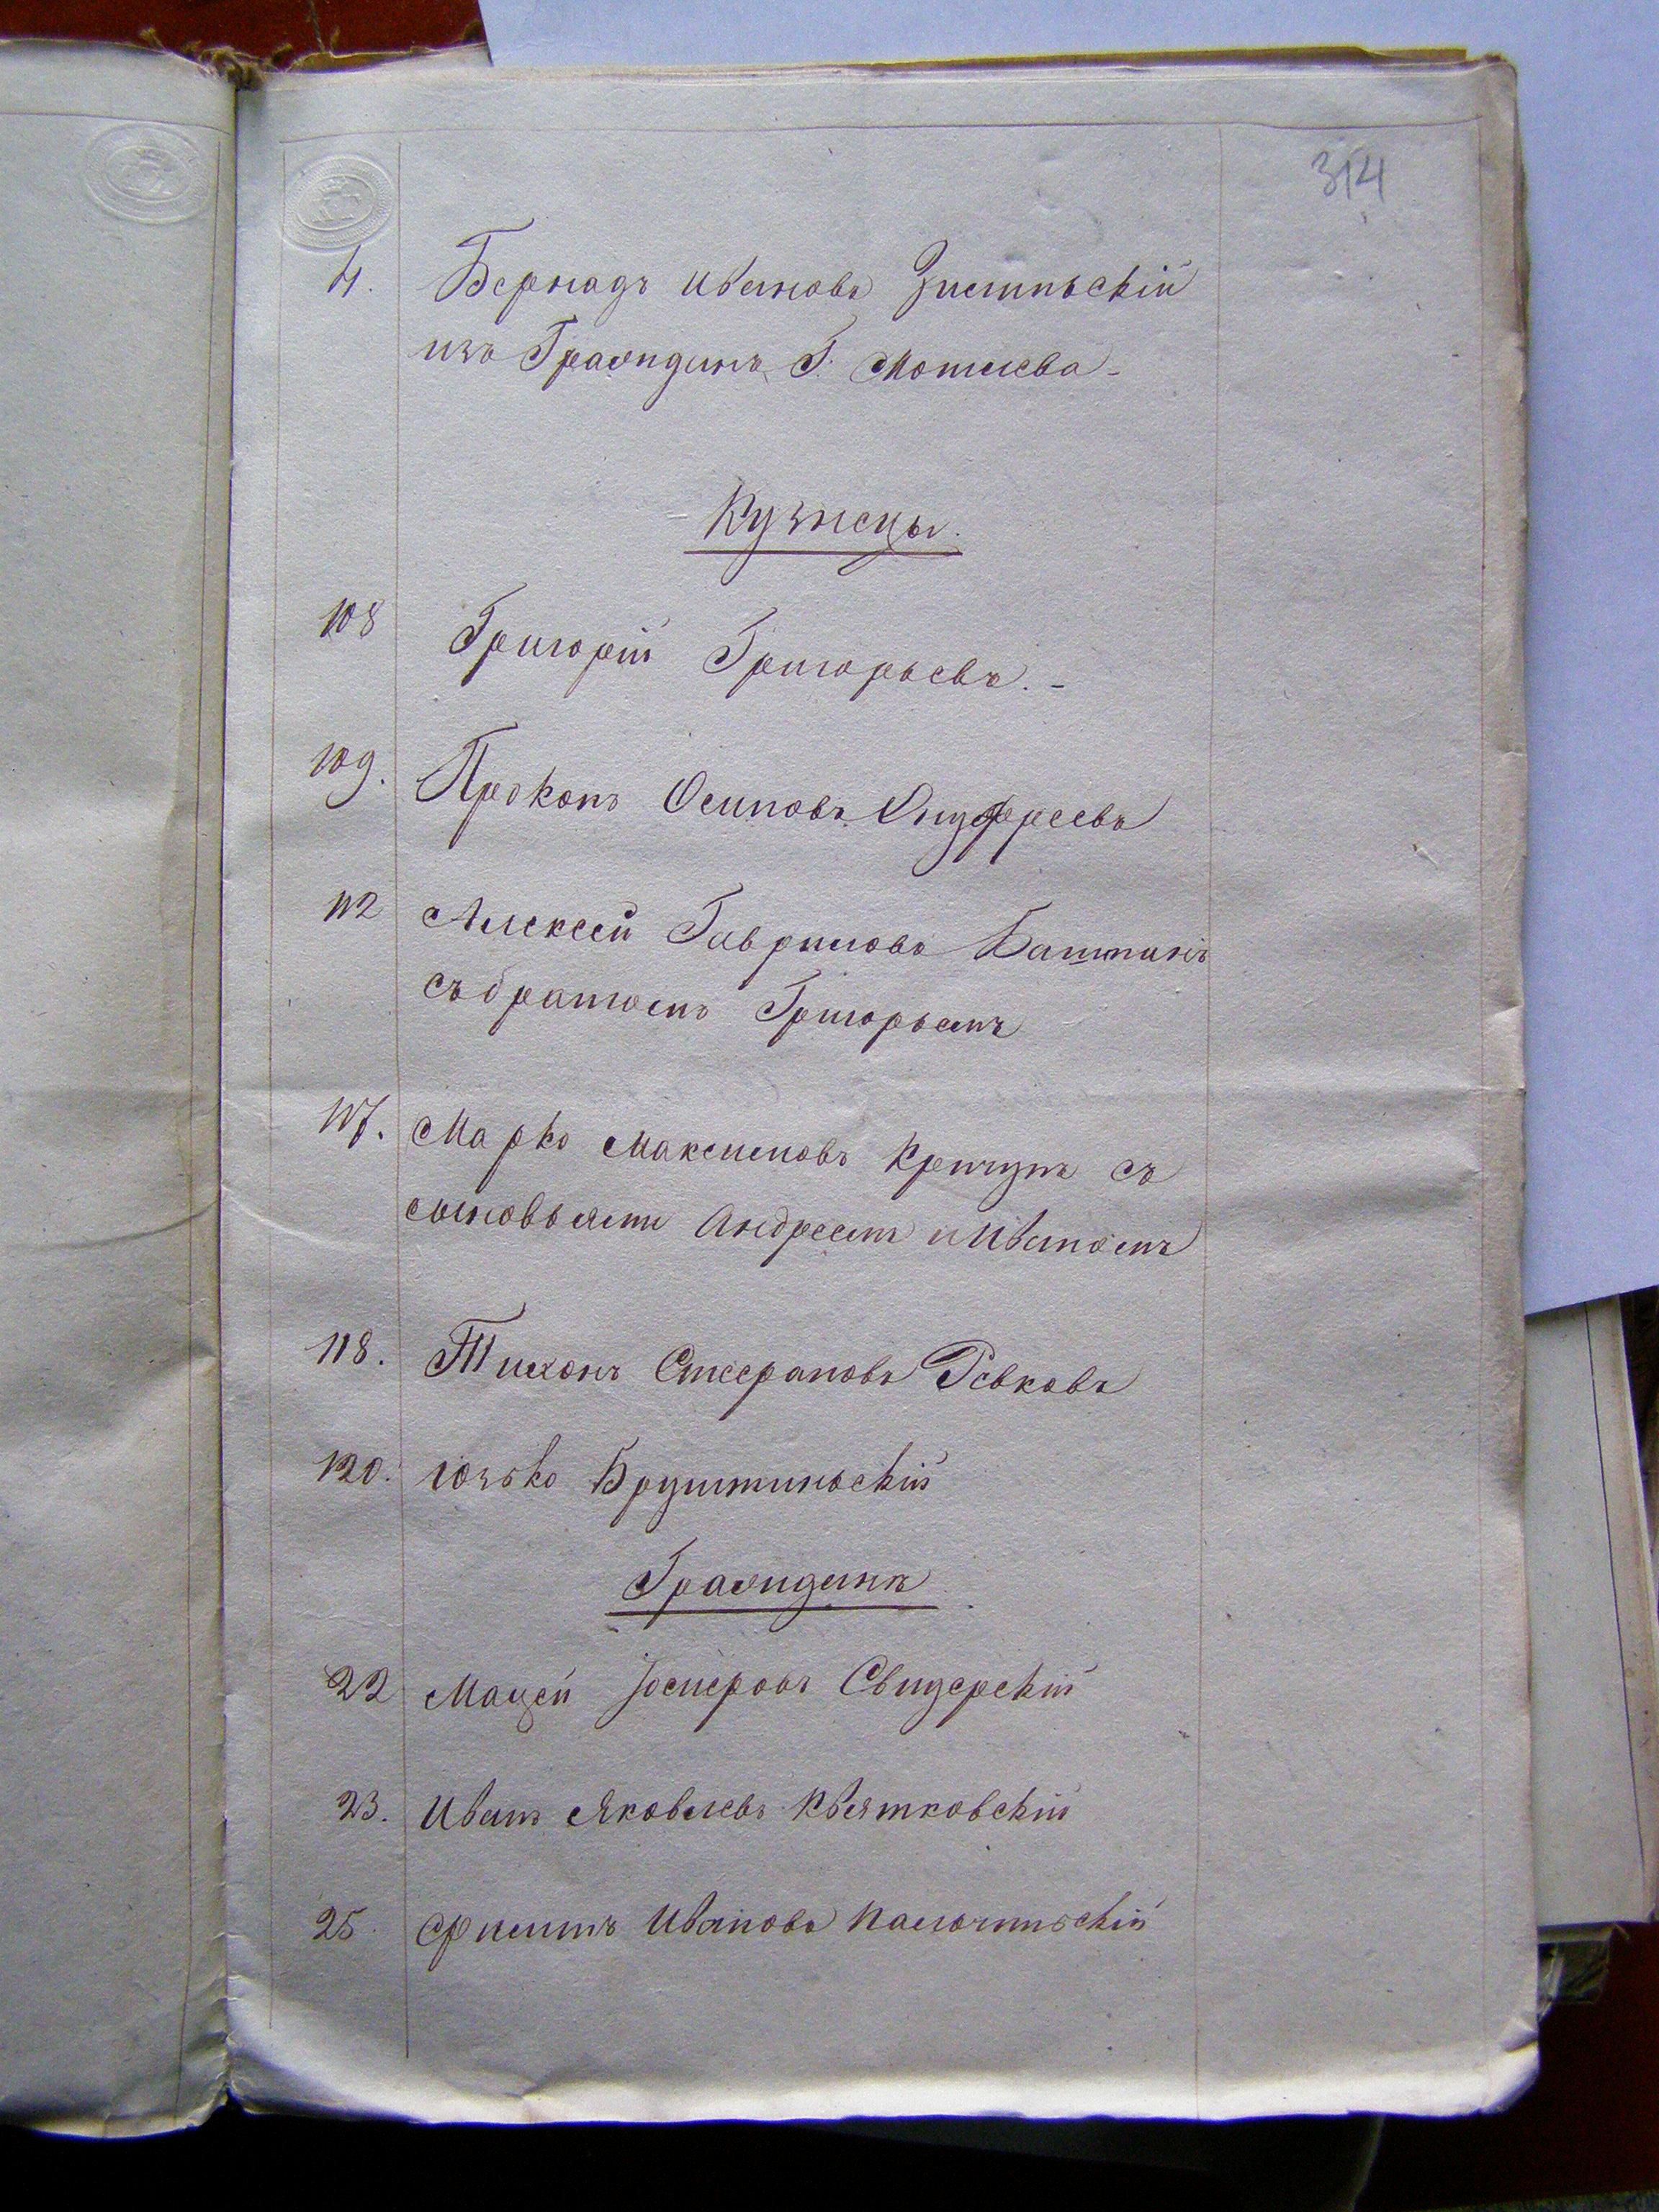 314
4. Бернадъ Ивановъ Змельскій
изъ Гражданъ Г. Могилева -
Кузнецы.
108 Григорій Григорьевъ. -
109. Прокопъ Осиповъ Ануфреевъ
112 Алексей Гавриловъ Баштанъ
съ братомъ Григорьемъ
117. Марко Максимовъ Кричунъ съ
сыновьями Андреемъ и Иваномъ
118. Тихонъ Стефановъ Ревковъ
120. Юзько Бруштиньскій
Гражданъ
22 Мацей Іосифовъ Свидерскій
23. Иванъ Яковлевъ Квятковскій
25. Филипъ Ивановъ